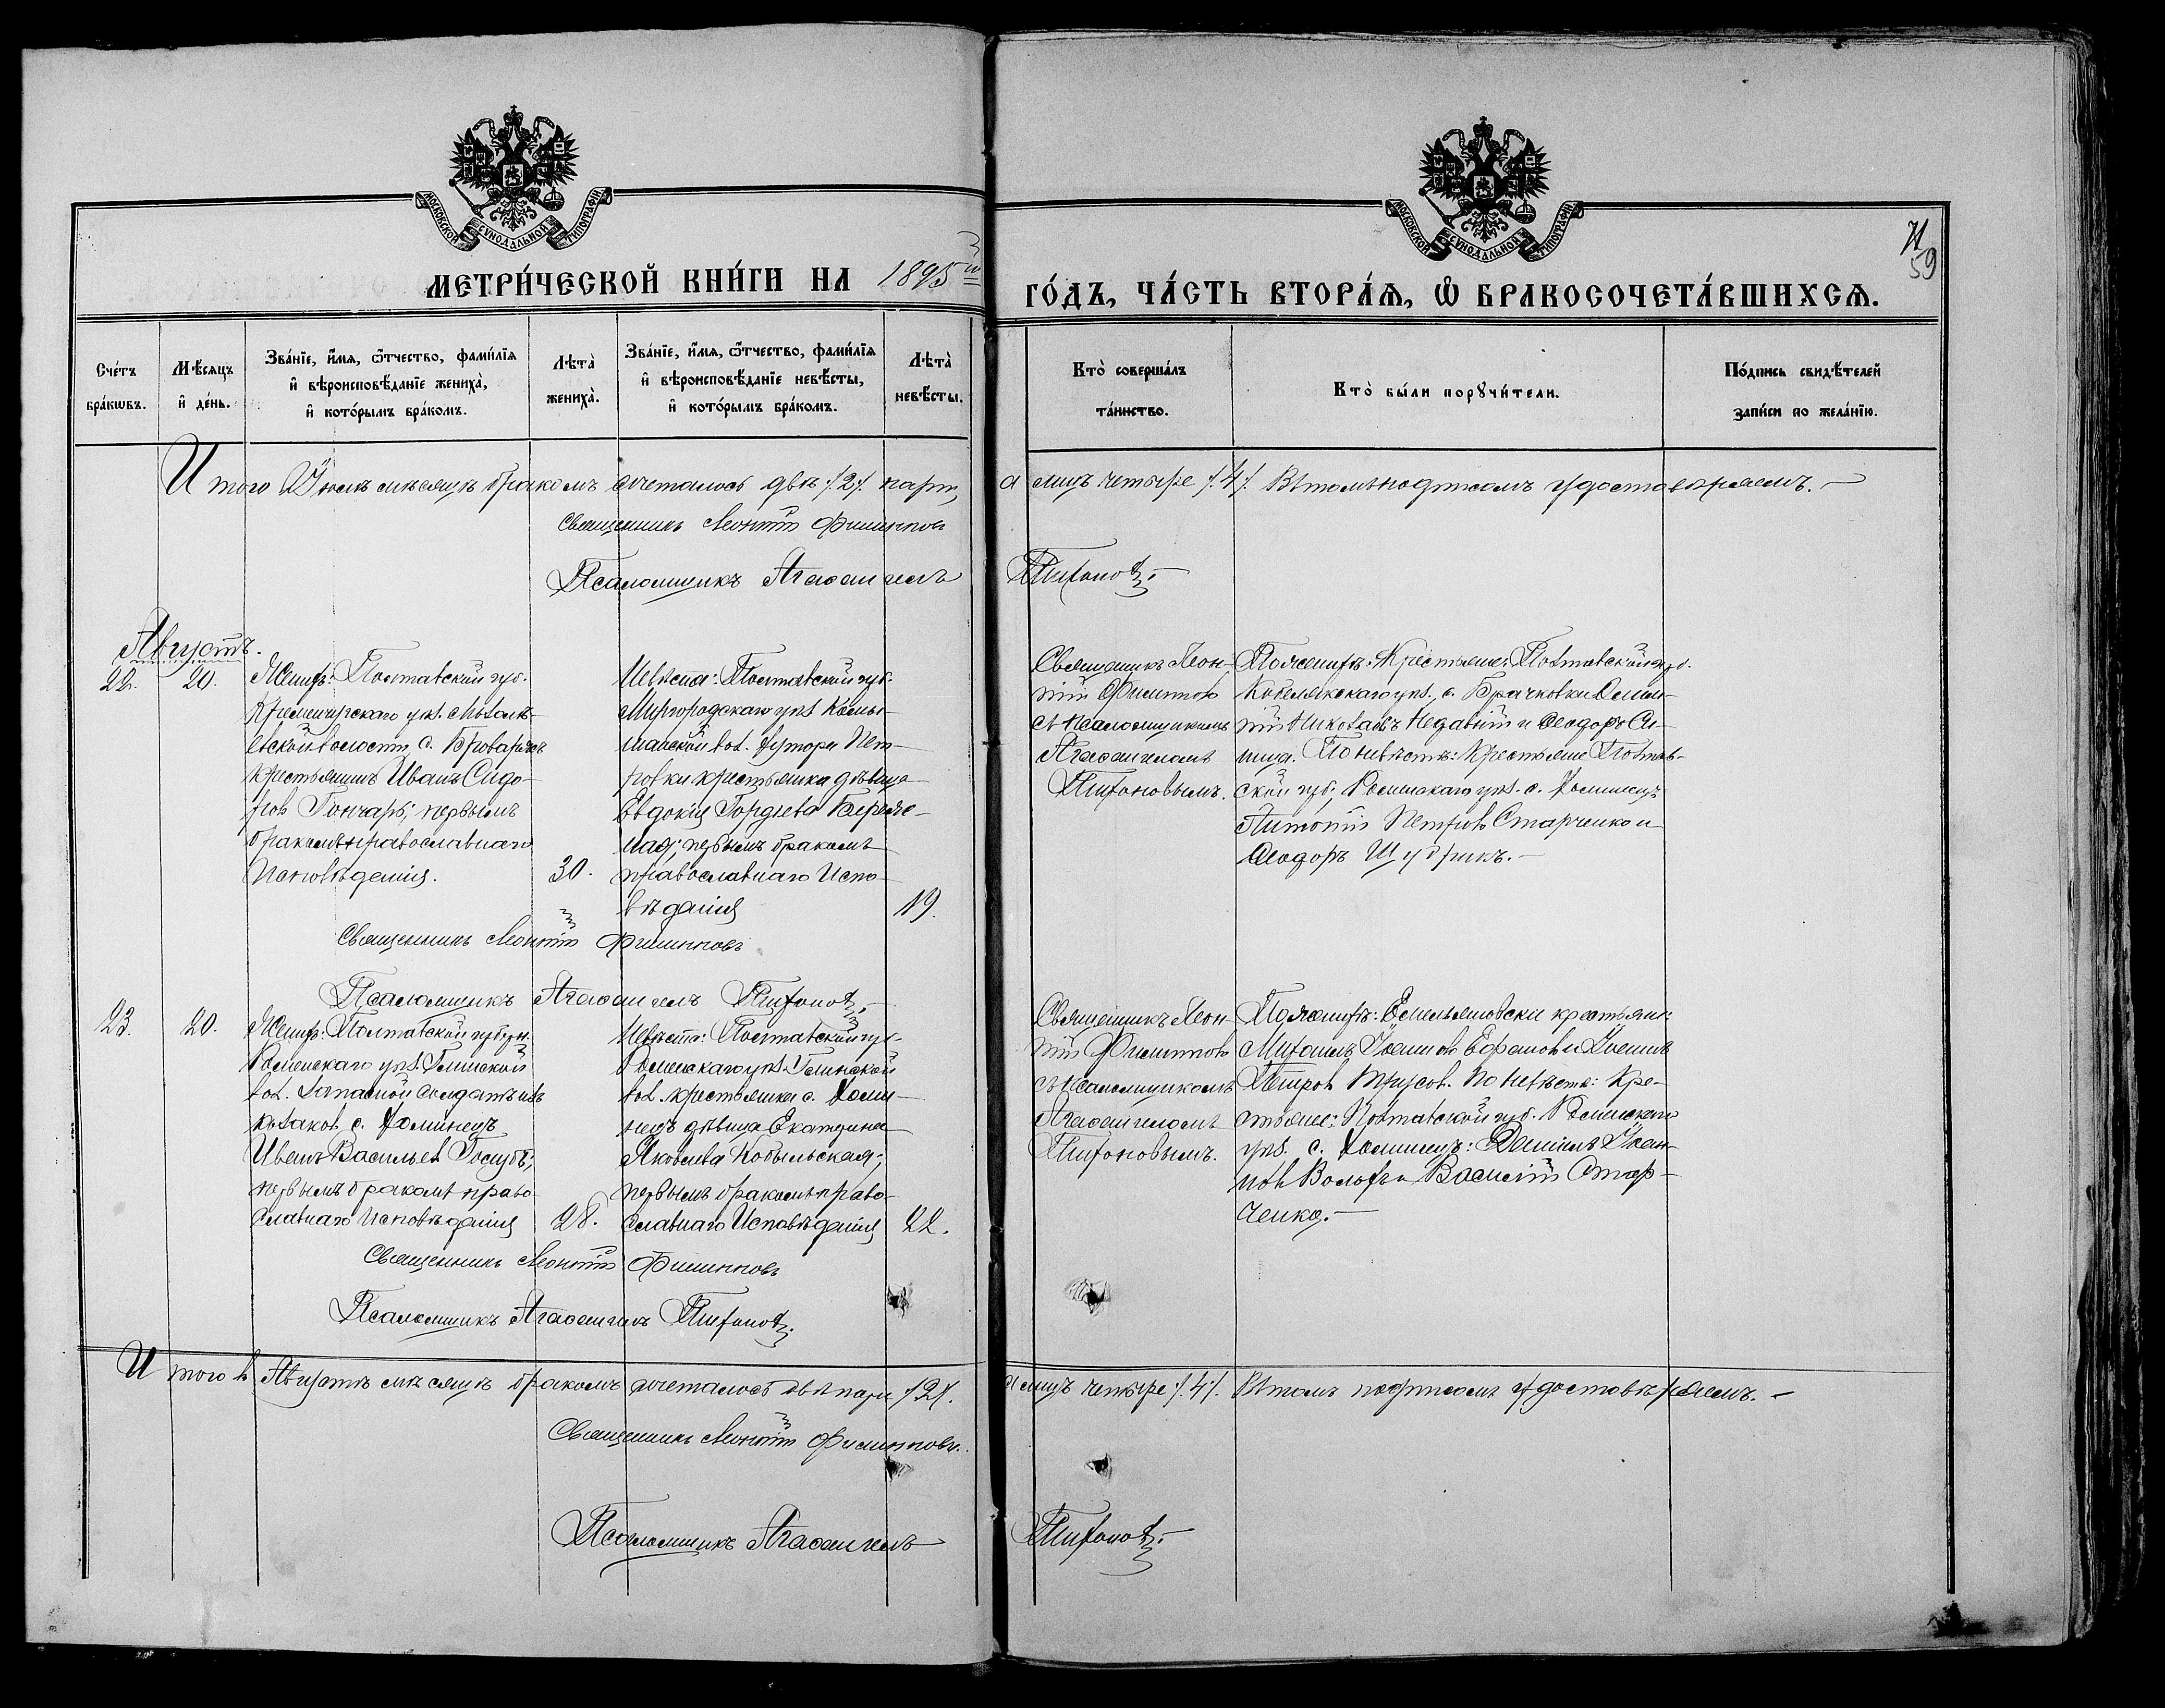 МОСКОВСКОЙ СѴНОДАЛЬНОЙ ТИПОГРАФІИ
МОСКОВСКОЙ СѴНОДАЛЬНОЙ ТИПОГРАФІИ
71
59
МЕТРИ́ЧЕСКОЙ КНИ́ГИ НА 1895й
ГО́ДЪ, ЧА́СТЬ ВТОРА́Ѧ, Ѡ БРАКОСОЧЕТА́ВШИХСѦ.
Сче́тъ бра́кѡвъ.
Мѣ́сяцъ и҆ де́нь.
Зва́нїе, и҆́мѧ, ѻ҆́тчество, фами́лїѧ и҆ вѣроисповѣ́данїе жениха̀, и҆ кото́рымъ бра́комъ.
Лѣта̀ жениха̀.
Зва́нїе, и҆́мѧ, ѻ҆́тчество, фами́лїѧ и҆ вѣроисповѣ́данїе невѣ́сты, и҆ кото́рымъ бра́комъ.
Лѣта̀ невѣ́сты.
Кто̀ соверша́лъ та́инство.
Кто̀ бы́ли порꙋчи́тели.
По́дпись свидѣ́телей за́писи по жела́нїю.
Итого Юлѣ мѣсяцѣ бракомъ сочеталось двѣ /.2/. пары,
а лицъ четыре /.4/. Въ томъ подписомъ удостовѣряемъ. —
Священникъ Леонтій Филипповъ
Псаломщикъ Агаѳангелъ
Тихоновъ. —
Августъ.
22.
20.
Женихъ: Полтавской губ.
Кременчугскаго уѣз.
ской волости, с. Броварокъ
крестьянинъ Иванъ Сидо-
ровъ Гончаръ; первымъ
бракомъ православнаго
Исповѣданія.
30.
Невѣста: Полтавской губ.
Миргородскаго уѣз. Комы-
шанской вол. хутора Пет-
ровки крестьянка дѣвица
Евдокія Гордѣева Береж-
ная; первымъ бракомъ
православнаго Испо-
вѣданія
19.
Священникъ Леон-
тій Филиповъ
съ псаломщикомъ
Агаѳангеломъ
Тихоновымъ.
По женихѣ: Крестьяне: Полтавской губ.
Кобелякскаго уѣз., с. Брачковки
и Ѳеодоръ Си-
ница. По невѣстѣ: Крестьяне Полтав-
ской губ, Роменскаго уѣз. с. Хоминецъ
Антоній Петровъ Старченко и
Ѳеодоръ Шубрикъ. —
Священникъ Леонтій Филипповъ
Псаломщикъ Агаѳангелъ Тихоновъ. —
23.
20.
Женихъ: Полтавской губерн.
Роменскаго уѣз. Глинской
вол. Запасной солдатъ изъ
козаковъ с. Хоминецъ
Иванъ Васильевъ Голубъ;
первымъ бракомъ право-
славнаго Исповѣданія
28.
Невѣста: Полтавской губ.
Роменскаго уѣз. Глинской
вол. крестьянка с. Хоми-
нецъ дѣвица Екатерина
Яковлева Кобыльская;
первымъ бракомъ право-
славнаго Исповѣданія
22.
Священникъ Леон-
тій Филиповъ
съ псаломщикомъ
Агаѳангеломъ
Тихоновымъ.
По женихѣ: Емельяновски крестьяне:
Михаилъ Іоанновъ Ефановъ и Іоаннъ
Петровъ Трусовъ. По невѣстѣ: Кре-
стьяне: Полтавской губ. Роменскаго
уѣз. с. Хоминецъ: Даніилъ Іоан-
новъ Волохъ и Василій Стар-
ченко. —
Священникъ Леонтій Филипповъ
Псаломщикъ Агаѳангелъ Тихоновъ.
Итого въ Августѣ мѣсяцѣ бракомъ сочеталось двѣ пары /.2/.
а лицъ четыре /.4/. Въ томъ подписомъ удостовѣряемъ. —
Священникъ Леонтій Филипповъ.
Псаломщикъ Агаѳангелъ
Тихоновъ. —